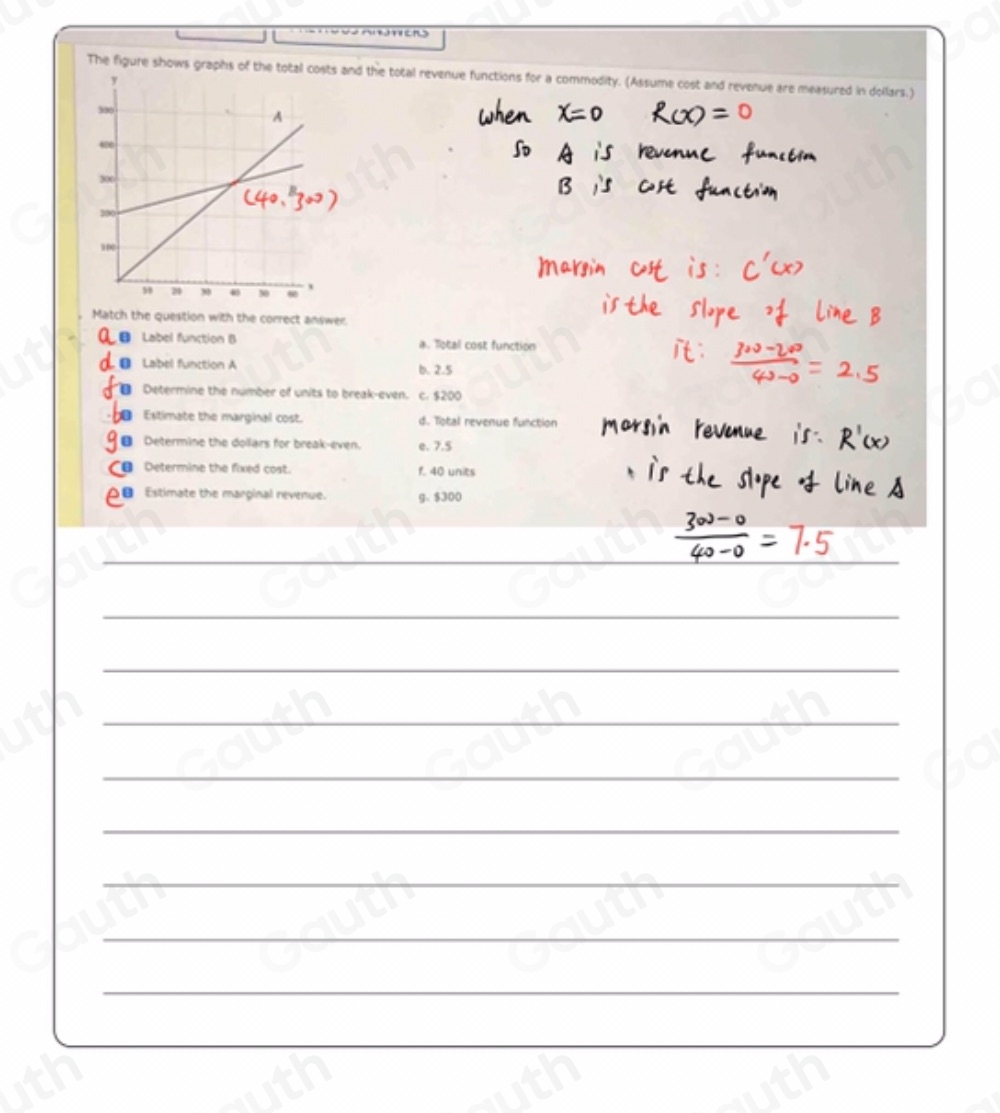 PREVIOUS ANSWERS
The figure shows graphs of the total costs and the total revenue functions for a commodity. (Assume cost and revenue are measured in dollars.)
y
500
400
300
200
100
A
B
(40, 300)
10 20 30 40 50 60 x
when x=0 R(x) = 0
So A is revenue function
B is cost function
margin cost is: C'(x)
is the slope of line B
it: 300-200 / 40-0 = 2.5
margin revenue is: R'(x)
is the slope of line A
300-0 / 40-0 = 7.5
Match the question with the correct answer.
a Label function B
d Label function A
f Determine the number of units to break-even.
b Estimate the marginal cost.
g Determine the dollars for break-even.
c Determine the fixed cost.
e Estimate the marginal revenue.
a. Total cost function
b. 2.5
c. $200
d. Total revenue function
e. 7.5
f. 40 units
g. $300
Gauth